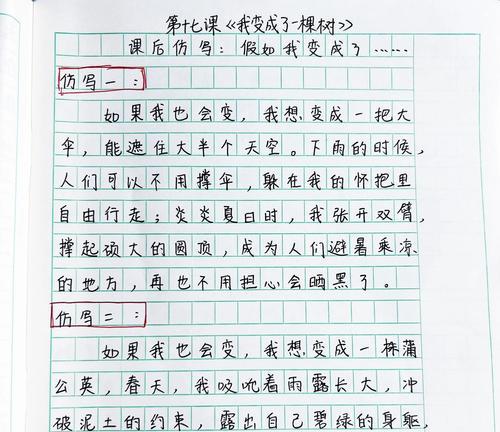 第十七课《我变成了一棵树》
课后仿写：假如我变成了……
仿写一：
如果我也会变，我想变成一把大
伞，能遮住大半个天空。下雨的时候，
人们可以不用撑伞，躲在我的怀抱里
自由行走；炎炎夏日时，我张开双臂，
撑起硕大的圆顶，成为人们避暑乘凉
的地方，再也不用担心会晒黑了。
仿写二：
如果我也会变，我想变成一株蒲
公英，春天，我吸吮着雨露长大，冲
破泥土的约束，露出自己碧绿的身躯，